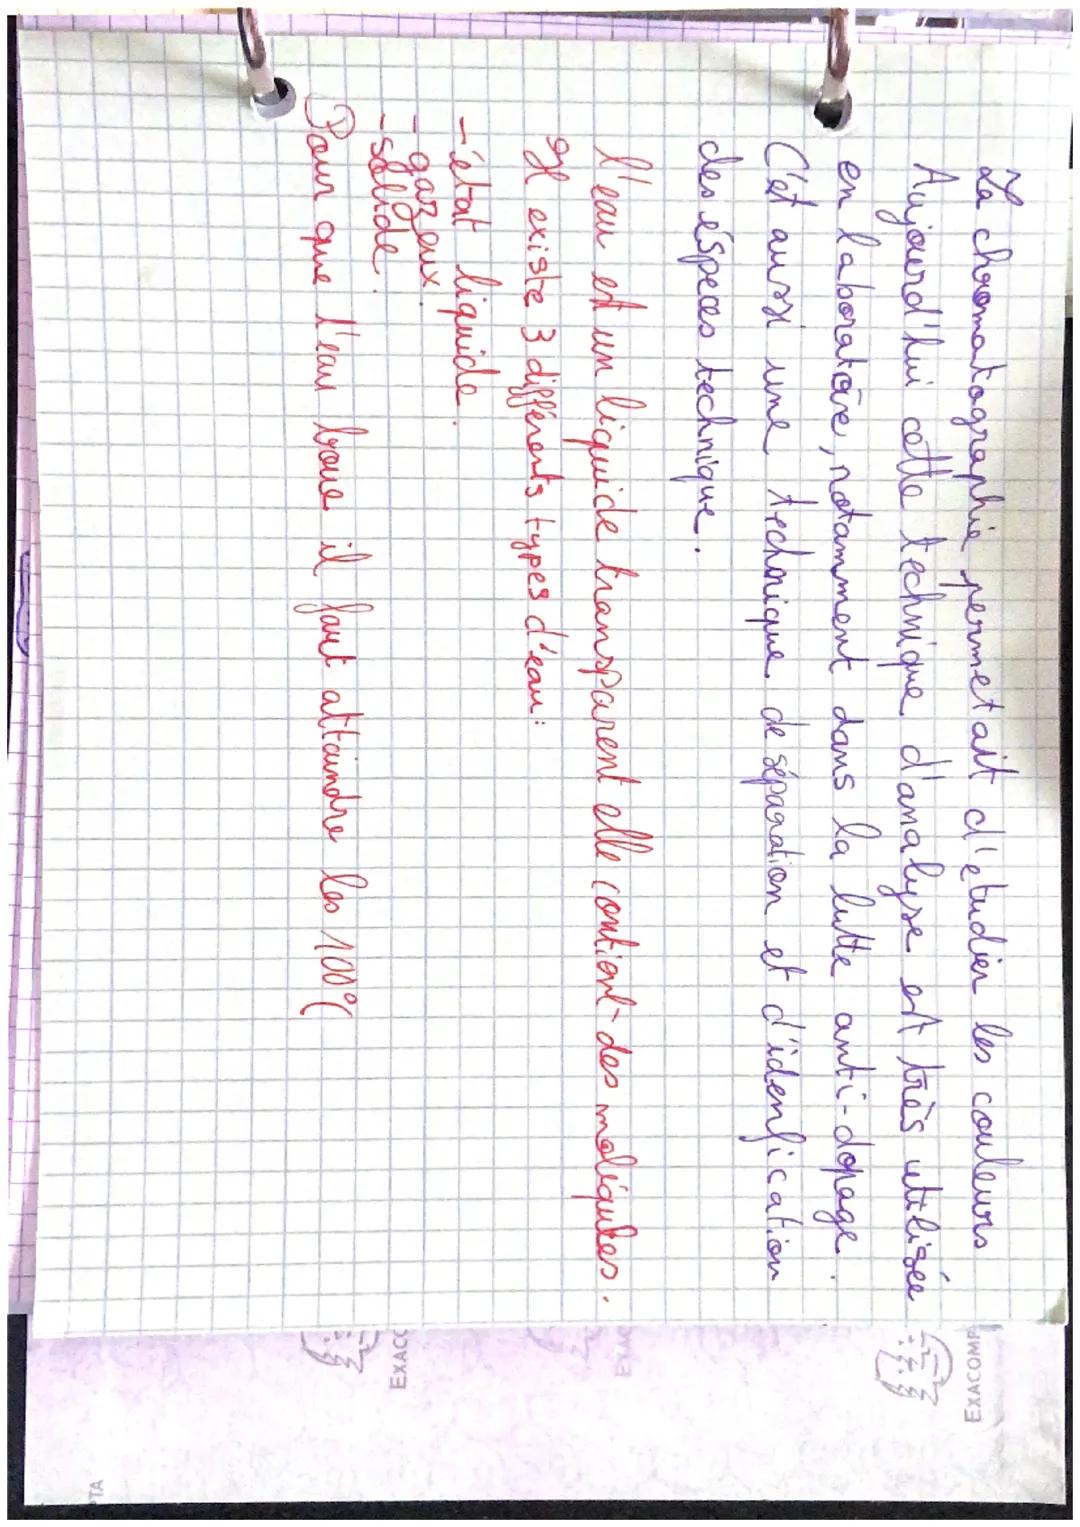 La chromatographie permetait d'etudier les couleurs
Aujourd'hui cette technique d'analyse est très utilisée
en laboratoire, notamment dans la lutte anti-dopage.
C'et aussi une technique de séparation et d'idenfication
des éspeces technique.
l'eau est un liquide transparent elle contient des moliqules.
Il existe 3 différents types d'eau:
-état liquide.
-gazeux.
-solide.
Pour que l'eau boue il faut attaindre les 100°C
EXACOMP
EXAC
EXAC
PTA